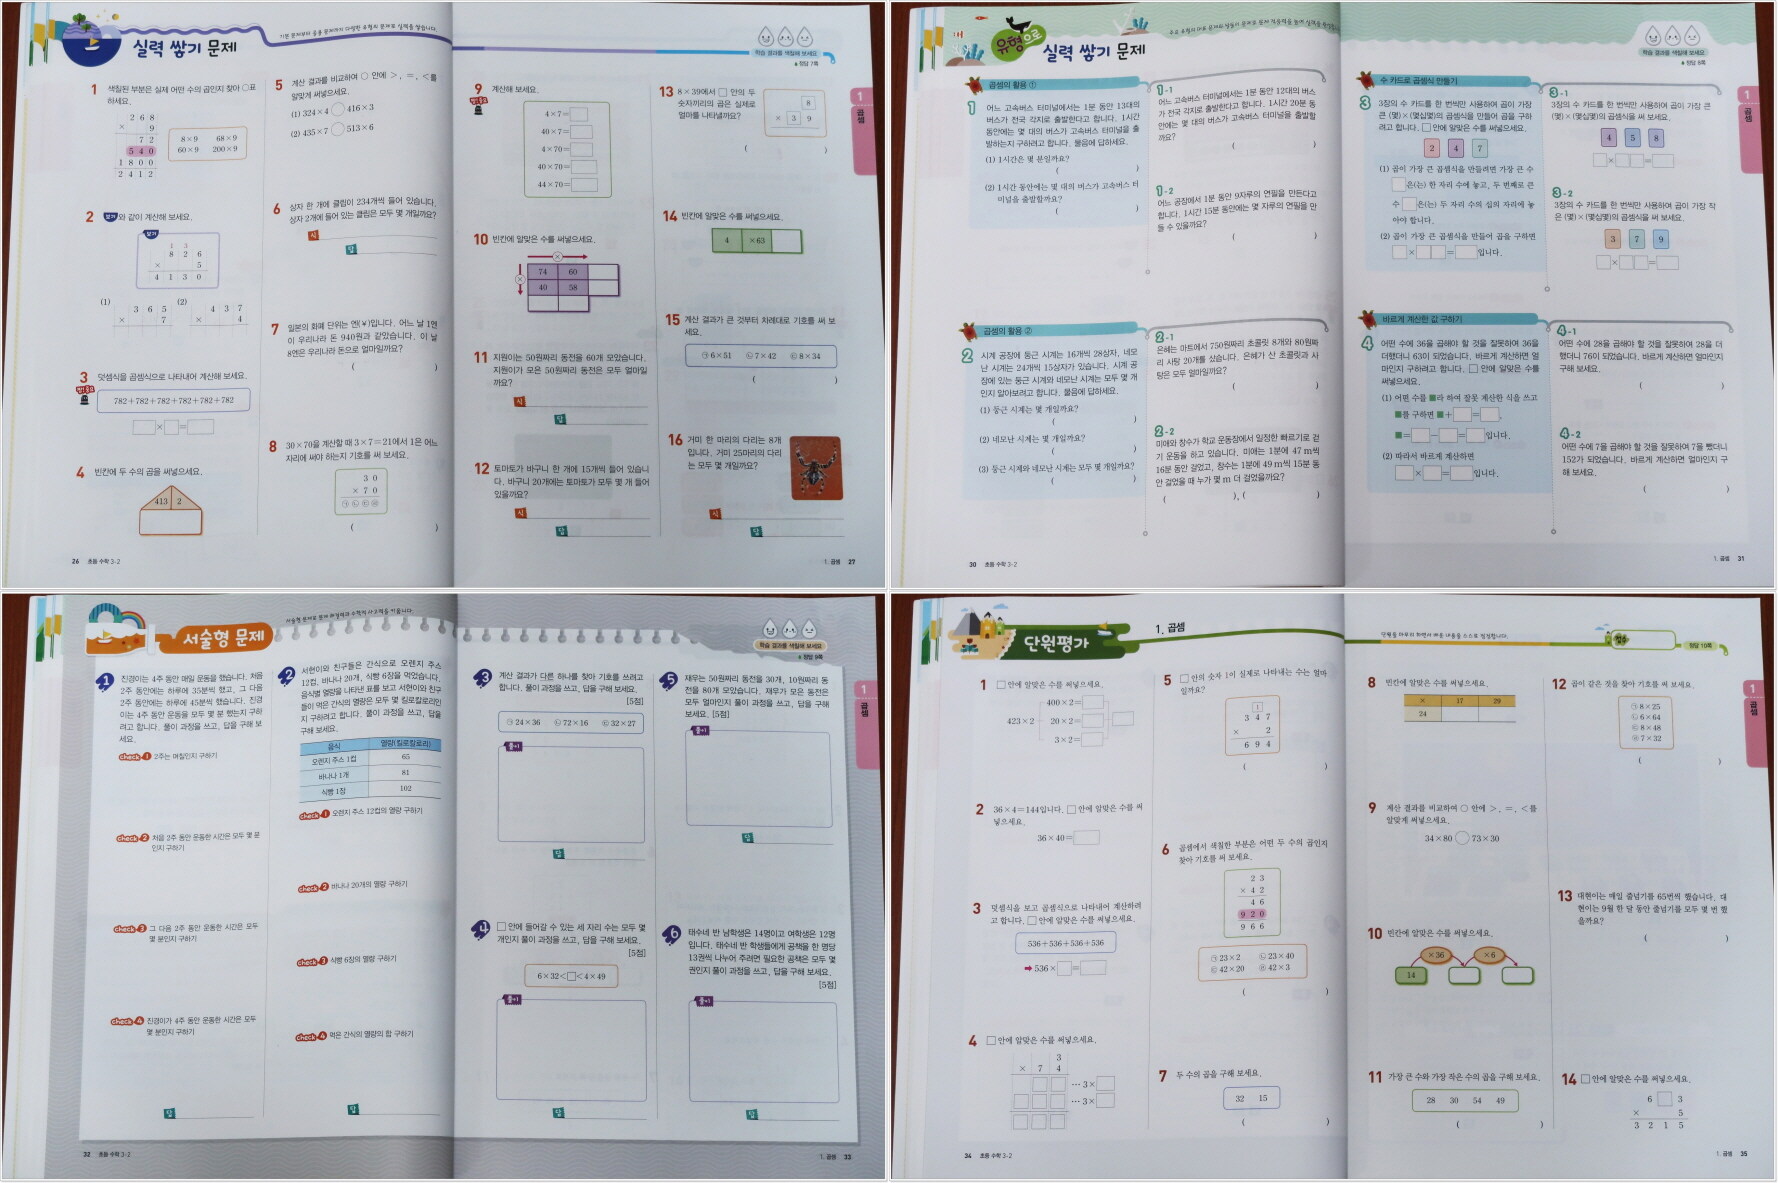 실력 쌓기 문제
기본 문제부터 응용 문제까지 다양한 유형의 문제로 실력을 쌓습니다.
1 색칠된 부분은 실제 어떤 수의 곱인지 찾아 ○표
하세요.
2 6 8
× 9
7 2
5 4 0
1 8 0 0
2 4 1 2
8×9 68×9
60×9 200×9
2 보기 와 같이 계산해 보세요.
보기
1 3
8 2 6
× 5
4 1 3 0
(1) 3 6 5
× 7
(2) 4 3 7
× 4
3 덧셈식을 곱셈식으로 나타내어 계산해 보세요.
782+782+782+782+782+782
□×□=□
4 빈칸에 두 수의 곱을 써넣으세요.
413 2
26 초등 수학 3-2
5 계산 결과를 비교하여 ○ 안에 >, =, <를
알맞게 써넣으세요.
(1) 324×4 ○ 416×3
(2) 435×7 ○ 513×6
6 상자 한 개에 클립이 234개씩 들어 있습니다.
상자 2개에 들어 있는 클립은 모두 몇 개일까요?
식
답
7 일본의 화폐 단위는 엔(¥)입니다. 어느 날 1엔
이 우리나라 돈 940원과 같았습니다. 이 날
8엔은 우리나라 돈으로 얼마일까요?
( )
8 30×70을 계산할 때 3×7=21에서 1은 어느
자리에 써야 하는지 기호를 써 보세요.
3 0
× 7 0
㉠ ㉡ ㉢ ㉣
( )
학습 결과를 색칠해 보세요
정답 7쪽
9 계산해 보세요.
4×7=□
40×7=□
4×70=□
40×70=□
44×70=□
10 빈칸에 알맞은 수를 써넣으세요.
×
×
74 60
40 58
11 지원이는 50원짜리 동전을 60개 모았습니다.
지원이가 모은 50원짜리 동전은 모두 얼마일
까요?
식
답
12 토마토가 바구니 한 개에 15개씩 들어 있습니
다. 바구니 20개에는 토마토가 모두 몇 개 들어
있을까요?
식
답
13 8×39에서 □ 안의 두
숫자끼리의 곱은 실제로
얼마를 나타낼까요?
8
× 3 9
( )
14 빈칸에 알맞은 수를 써넣으세요.
4 ×63
15 계산 결과가 큰 것부터 차례대로 기호를 써 보
세요.
㉠ 6×51 ㉡ 7×42 ㉢ 8×34
( )
16 거미 한 마리의 다리는 8개
입니다. 거미 25마리의 다리
는 모두 몇 개일까요?
식
답
1
곱셈
1. 곱셈 27
유형으로 실력 쌓기 문제
곱셈의 활용 ①
1 어느 고속버스 터미널에서는 1분 동안 13대의
버스가 전국 각지로 출발한다고 합니다. 1시간
동안에는 몇 대의 버스가 고속버스 터미널을 출
발하는지 구하려고 합니다. 물음에 답하세요.
(1) 1시간은 몇 분일까요?
( )
(2) 1시간 동안에는 몇 대의 버스가 고속버스 터
미널을 출발할까요?
( )
1-1
어느 고속버스 터미널에서는 1분 동안 12대의 버스
가 전국 각지로 출발한다고 합니다. 1시간 20분 동
안에는 몇 대의 버스가 고속버스 터미널을 출발할
까요?
( )
1-2
어느 공장에서 1분 동안 9자루의 연필을 만든다고
합니다. 1시간 15분 동안에는 몇 자루의 연필을 만
들 수 있을까요?
( )
곱셈의 활용 ②
2 시계 공장에 둥근 시계는 16개씩 28상자, 네모
난 시계는 24개씩 15상자가 있습니다. 시계 공
장에 있는 둥근 시계와 네모난 시계는 모두 몇 개
인지 알아보려고 합니다. 물음에 답하세요.
(1) 둥근 시계는 몇 개일까요?
( )
(2) 네모난 시계는 몇 개일까요?
( )
(3) 둥근 시계와 네모난 시계는 모두 몇 개일까요?
( )
2-1
은혜는 마트에서 750원짜리 초콜릿 8개와 80원짜
리 사탕 20개를 샀습니다. 은혜가 산 초콜릿과 사
탕은 모두 얼마일까요?
( )
2-2
미애와 창수가 학교 운동장에서 일정한 빠르기로 걷
기 운동을 하고 있습니다. 미애는 1분에 47 m씩
16분 동안 걸었고, 창수는 1분에 49 m씩 15분 동
안 걸었을 때 누가 몇 m 더 걸었을까요?
( ), ( )
30 초등 수학 3-2
학습 결과를 색칠해 보세요
정답 8쪽
수 카드로 곱셈식 만들기
3 3장의 수 카드를 한 번씩만 사용하여 곱이 가장
큰 (몇)×(몇십몇)의 곱셈식을 만들어 곱을 구하
려고 합니다. □ 안에 알맞은 수를 써넣으세요.
2 4 7
(1) 곱이 가장 큰 곱셈식을 만들려면 가장 큰 수
□은(는) 한 자리 수에 놓고, 두 번째로 큰
수 □은(는) 두 자리 수의 십의 자리에 놓
아야 합니다.
(2) 곱이 가장 큰 곱셈식을 만들어 곱을 구하면
□×□□=□입니다.
3-1
3장의 수 카드를 한 번씩만 사용하여 곱이 가장 큰
(몇)×(몇십몇)의 곱셈식을 써 보세요.
4 5 8
□×□□=□
3-2
3장의 수 카드를 한 번씩만 사용하여 곱이 가장 작
은 (몇)×(몇십몇)의 곱셈식을 써 보세요.
3 7 9
□×□□=□
바르게 계산한 값 구하기
4 어떤 수에 36을 곱해야 할 것을 잘못하여 36을
더했더니 63이 되었습니다. 바르게 계산하면 얼
마인지 구하려고 합니다. □ 안에 알맞은 수를
써넣으세요.
(1) 어떤 수를 ■라 하여 잘못 계산한 식을 쓰고
■를 구하면 ■+□=□,
■=□−□=□입니다.
(2) 따라서 바르게 계산하면
□×□=□입니다.
4-1
어떤 수에 28을 곱해야 할 것을 잘못하여 28을 더
했더니 76이 되었습니다. 바르게 계산하면 얼마인지
구해 보세요.
( )
4-2
어떤 수에 7을 곱해야 할 것을 잘못하여 7을 뺐더니
152가 되었습니다. 바르게 계산하면 얼마인지 구
해 보세요.
( )
1
곱셈
1. 곱셈 31
서술형 문제
서술형 문제로 문제 해결력과 수학적 사고력을 키웁니다.
1 진경이는 4주 동안 매일 운동을 했습니다. 처음
2주 동안에는 하루에 35분씩 했고, 그 다음
2주 동안에는 하루에 45분씩 했습니다. 진경
이는 4주 동안 운동을 모두 몇 분 했는지 구하
려고 합니다. 풀이 과정을 쓰고, 답을 구해 보
세요.
check 1 2주는 며칠인지 구하기
check 2 처음 2주 동안 운동한 시간은 모두 몇 분
인지 구하기
check 3 그 다음 2주 동안 운동한 시간은 모두
몇 분인지 구하기
check 4 진경이가 4주 동안 운동한 시간은 모두
몇 분인지 구하기
답
2 서현이와 친구들은 간식으로 오렌지 주스
12컵, 바나나 20개, 식빵 6장을 먹었습니다.
음식별 열량을 나타낸 표를 보고 서현이와 친구
들이 먹은 간식의 열량은 모두 몇 킬로칼로리인
지 구하려고 합니다. 풀이 과정을 쓰고, 답을
구해 보세요.
음식 열량(킬로칼로리)
오렌지 주스 1컵 65
바나나 1개 81
식빵 1장 102
check 1 오렌지 주스 12컵의 열량 구하기
check 2 바나나 20개의 열량 구하기
check 3 식빵 6장의 열량 구하기
check 4 먹은 간식의 열량의 합 구하기
답
32 초등 수학 3-2
학습 결과를 색칠해 보세요
정답 9쪽
3 계산 결과가 다른 하나를 찾아 기호를 쓰려고
합니다. 풀이 과정을 쓰고, 답을 구해 보세요.
[5점]
㉠ 24×36 ㉡ 72×16 ㉢ 32×27
풀이
답
4 □ 안에 들어갈 수 있는 세 자리 수는 모두 몇
개인지 풀이 과정을 쓰고, 답을 구해 보세요.
[5점]
6×32<□<4×49
풀이
답
5 재무는 50원짜리 동전을 30개, 10원짜리 동
전을 80개 모았습니다. 재무가 모은 동전은
모두 얼마인지 풀이 과정을 쓰고, 답을 구해 보
세요. [5점]
풀이
답
6 태수네 반 남학생은 14명이고 여학생은 12명
입니다. 태수네 반 학생들에게 공책을 한 명당
13권씩 나누어 주려면 필요한 공책은 모두 몇
권인지 풀이 과정을 쓰고, 답을 구해 보세요.
[5점]
풀이
답
1
곱셈
1. 곱셈 33
단원평가
1. 곱셈
1 □ 안에 알맞은 수를 써넣으세요.
423×2
400×2=□
20×2=□
3×2=□
2 36×4=144입니다. □ 안에 알맞은 수를 써
넣으세요.
36×40=□
3 덧셈식을 보고 곱셈식으로 나타내어 계산하려
고 합니다. □ 안에 알맞은 수를 써넣으세요.
536+536+536+536
➡ 536×□=□
4 □ 안에 알맞은 수를 써넣으세요.
3
× 7 4
□□ … 3×□
□□□ … 3×□
□□□
5 □ 안의 숫자 1이 실제로 나타내는 수는 얼마
일까요?
1
3 4 7
× 2
6 9 4
( )
6 곱셈에서 색칠한 부분은 어떤 두 수의 곱인지
찾아 기호를 써 보세요.
2 3
× 4 2
4 6
9 2 0
9 6 6
㉠ 23×2 ㉡ 23×40
㉢ 42×20 ㉣ 42×3
( )
7 두 수의 곱을 구해 보세요.
32 15
( )
34 초등 수학 3-2
단원을 마무리 하면서 배운 내용을 스스로 점검합니다.
점수
정답 10쪽
8 빈칸에 알맞은 수를 써넣으세요.
× 17 29
24
9 계산 결과를 비교하여 ○ 안에 >, =, <를
알맞게 써넣으세요.
34×80 ○ 73×30
10 빈칸에 알맞은 수를 써넣으세요.
×36 ×6
14
11 가장 큰 수와 가장 작은 수의 곱을 구해 보세요.
28 30 54 49
( )
12 곱이 같은 것을 찾아 기호를 써 보세요.
㉠ 8×25
㉡ 6×64
㉢ 8×48
㉣ 7×32
( )
13 대현이는 매일 줄넘기를 65번씩 했습니다. 대
현이는 9월 한 달 동안 줄넘기를 모두 몇 번 했
을까요?
( )
14 □ 안에 알맞은 수를 써넣으세요.
6 □ 3
× 5
3 2 1 5
1
곱셈
1. 곱셈 35